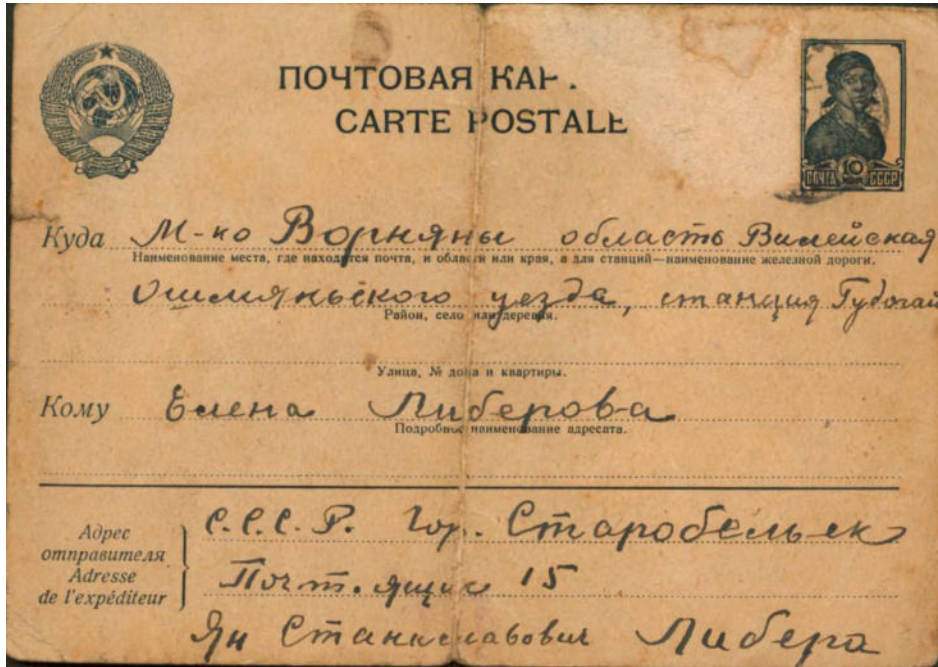 ПОЧТОВАЯ КАР
CARTE POSTALE
ПОЧТА 10 СССР
Куда М-ко Ворняны область Вилейская
Наименование места, где находится почта, и области или края, а для станций—наименование железной дороги.
Ошмяньского уезда, станция Гудогай
Район, село или деревня.
Улица, № дома и квартиры.
Кому Елена Либерова
Подробное наименование адресата.
Адрес отправителя С.С.С.Р. гор. Старобельск
Adresse de l'expéditeur Почт. ящик 15
Ян Станиславович Либера